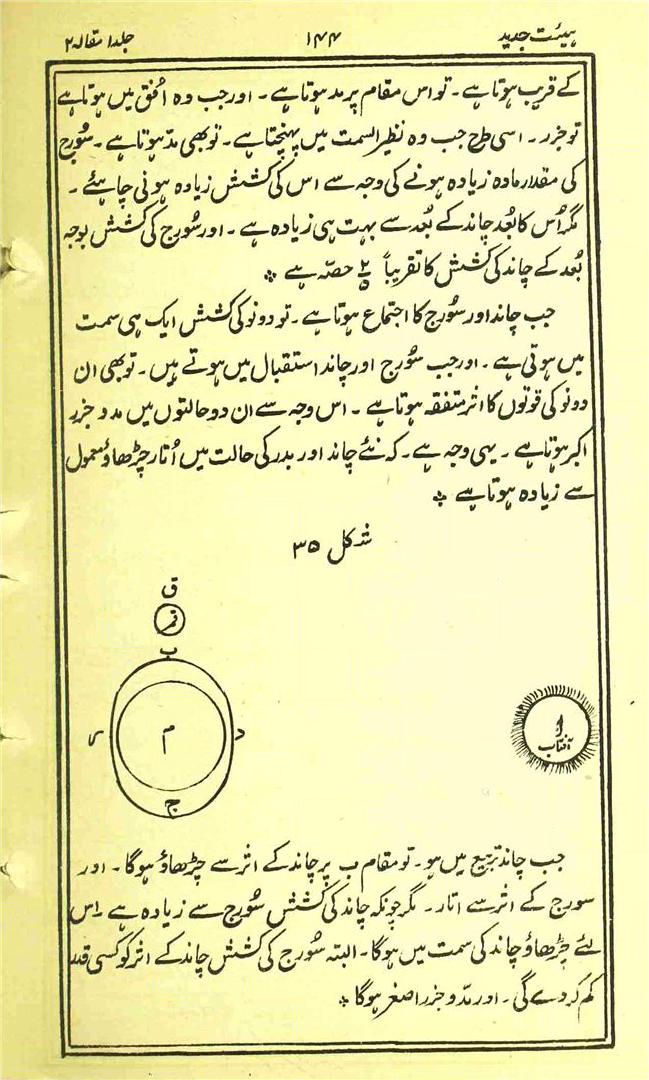 ہیئت جدید ۱۴۴ جلد ۱ مقالہ ۲
کے قریب ہوتا ہے۔ تو اس مقام پر مد ہوتا ہے۔ اور جب وہ اُفق میں ہوتا ہے
تو جزر۔ اسی طرح جب وہ نظیر السمت میں پہنچتا ہے۔ تو بھی مدّ ہوتا ہے۔ سُورج
کی مقدار مادہ زیادہ ہونے کی وجہ سے اس کی کشش زیادہ ہونی چاہئے۔
مگر اُس کا بُعد چاند کے بُعد سے بہت ہی زیادہ ہے۔ اور سُورج کی کشش بوجہ
بُعد کے چاند کی کشش کا تقریباً ۲/۵ حصّہ ہے ❊
جب چاند اور سُورج کا اجتماع ہوتا ہے۔ تو دونو کی کشش ایک ہی سمت
میں ہوتی ہے۔ اور جب سُورج اور چاند استقبال میں ہوتے ہیں۔ تو بھی ان
دونو کی قوتوں کا اثر متفقہ ہوتا ہے۔ اس وجہ سے ان دو حالتوں میں مد و جزر
اکبر ہوتا ہے۔ یہی وجہ ہے۔ کہ نئے چاند اور بدر کی حالت میں اُتار چڑھاؤ معمول
سے زیادہ ہوتا ہے ❊
شکل ۳۵
ق
قمر
ب
م
د
ر
ج
ا
آفتاب
جب چاند تربیع میں ہو۔ تو مقام ب پر چاند کے اثر سے چڑھاؤ ہوگا۔ اور
سورج کے اثر سے اتار۔ مگر چونکہ چاند کی کشش سُورج سے زیادہ ہے اس
لئے چڑھاؤ چاند کی سمت میں ہوگا۔ البتہ سُورج کی کشش چاند کے اثر کو کسی قدر
کم کر دے گی۔ اور مدّ و جزر اصغر ہوگا ❊